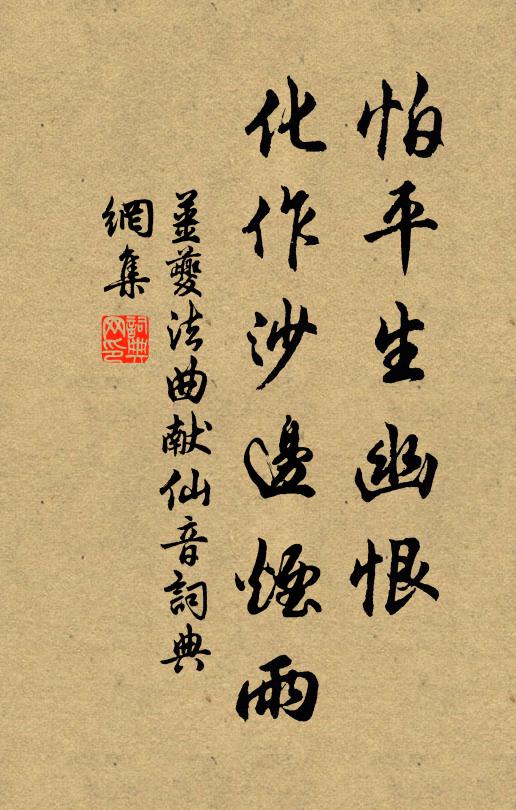 怕平生幽恨
化作沙邊煙雨
姜夔法曲献仙音詞典
網集
詞典网印